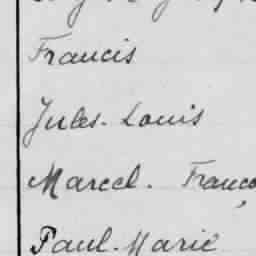 Francis
Jules. Louis
Marcel. Franço
Paul. Marie